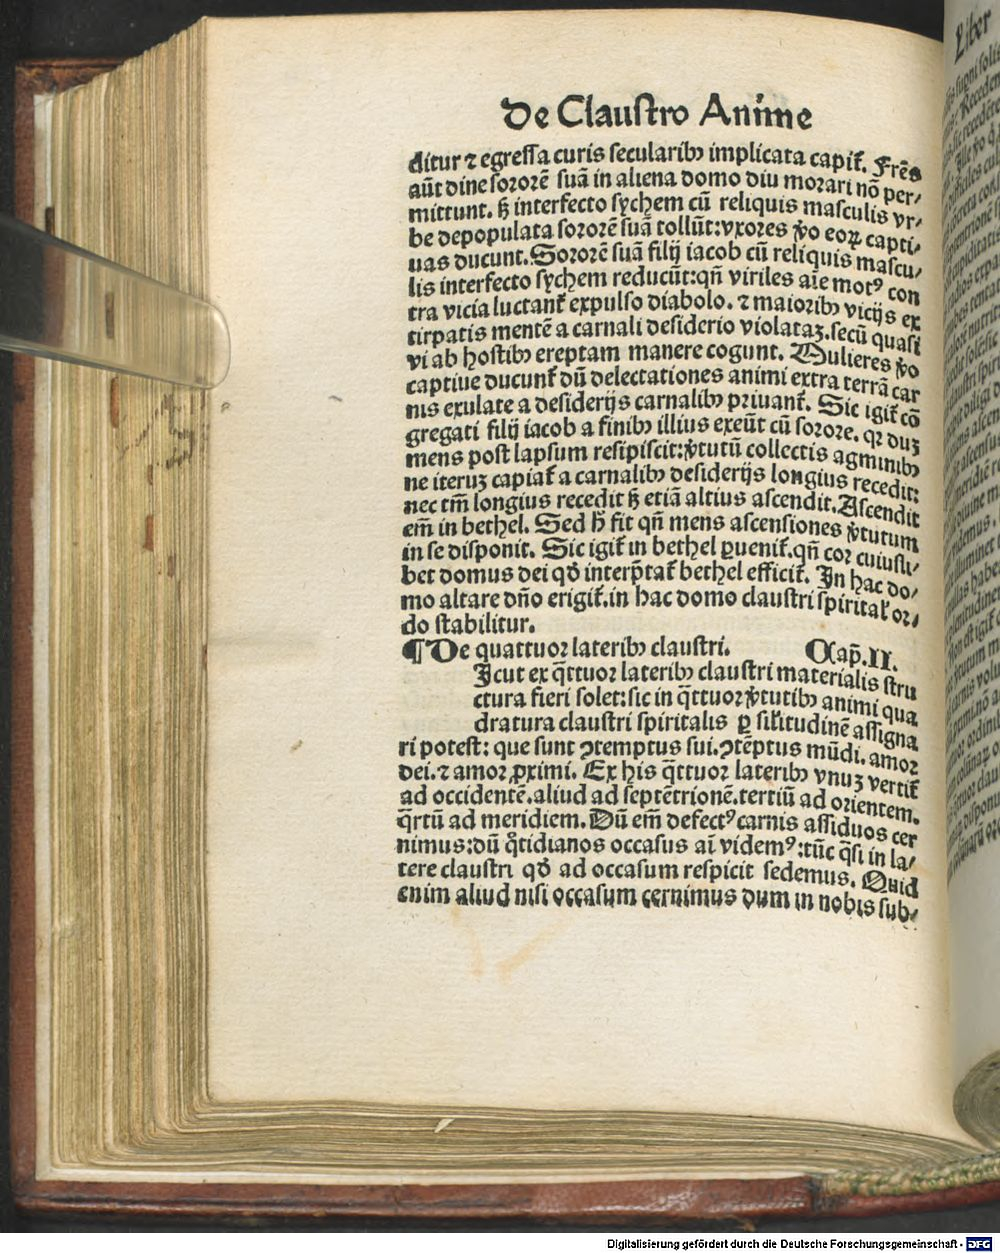 De Claustro Anime
ditur ⁊ egreſſa curis ſecularibꝫ implicata capit᷑. Frēs
aūt dine ſororē ſuā in aliena domo diu morari nō per⸗
mittunt. ß interfecto ſychem cū reliquis maſculis vr⸗
be depopulata ſororē ſuā tollūt: vxores v̄o eoꝝ capti⸗
uas ducunt. Sororē ſuā filij iacob cū reliquis maſcu⸗
lis interfecto ſychem reducūt: qn̄ viriles aīe motꝰ con
tra vicia luctant᷑ expulſo diabolo. ⁊ maioribꝫ vicijs ex
tirpatis mentē a carnali deſiderio violataꝫ. ſecū quaſi
vi ab hoſtibꝫ ereptam manere cogunt. Mulieres v̄o
captiue ducunt᷑ dū delectationes animi extra terrā car
nis exulate a deſiderijs carnalibꝫ priuant᷑. Sic igit᷑ cō
gregati filij iacob a finibꝫ illius exeūt cū ſorore. qꝛ duꝫ
mens poſt lapſum reſipiſcit: v̄tutū collectis agminibꝫ
ne iteruꝫ capiat᷑ a carnalibꝫ deſiderijs longius recedit:
nec tm̄ longius recedit ß etiā altius aſcendit. Aſcendit
em̄ in bethel. Sed h̄ fit qn̄ mens aſcenſiones v̄tutum
in ſe diſponit. Sic igit᷑ in bethel ꝑuenit᷑. qn̄ cor cuiuſli⸗
bet domus dei qd̄ interp̄tat᷑ bethel efficit᷑. In hac do⸗
mo altare dn̄o erigit᷑. in hac domo clauſtri ſpirital᷑ or⸗
do ſtabilitur.
¶ De quattuor lateribꝫ clauſtri. Cap̄. II.
Icut ex q̄ttuor lateribꝫ clauſtri materialis ſtru
ctura fieri ſolet: ſic in q̄ttuor v̄tutibꝫ animi qua
dratura clauſtri ſpiritalis ꝑ ſil̄itudinē aſſigna
ri poteſt: que ſunt ꝯtemptus ſui. ꝯtēptus mūdi. amor
dei. ⁊ amor ꝓximi. Ex his q̄ttuor lateribꝫ vnuꝫ vertit᷑
ad occidentē. aliud ad ſeptētrionē. tertiū ad orientem.
q̄rtū ad meridiem. Dū em̄ defectꝰ carnis aſſiduos cer
nimus: dū q̊tidianos occaſus aī videmꝰ: tūc q̄ſi in la⸗
tere clauſtri qd̄ ad occaſum reſpicit ſedemus. Quid
enim aliud niſi occaſum cernimus dum in nobis ſub⸗
Liber
Digitalisierung gefördert durch die Deutsche Forschungsgemeinschaft - DFG